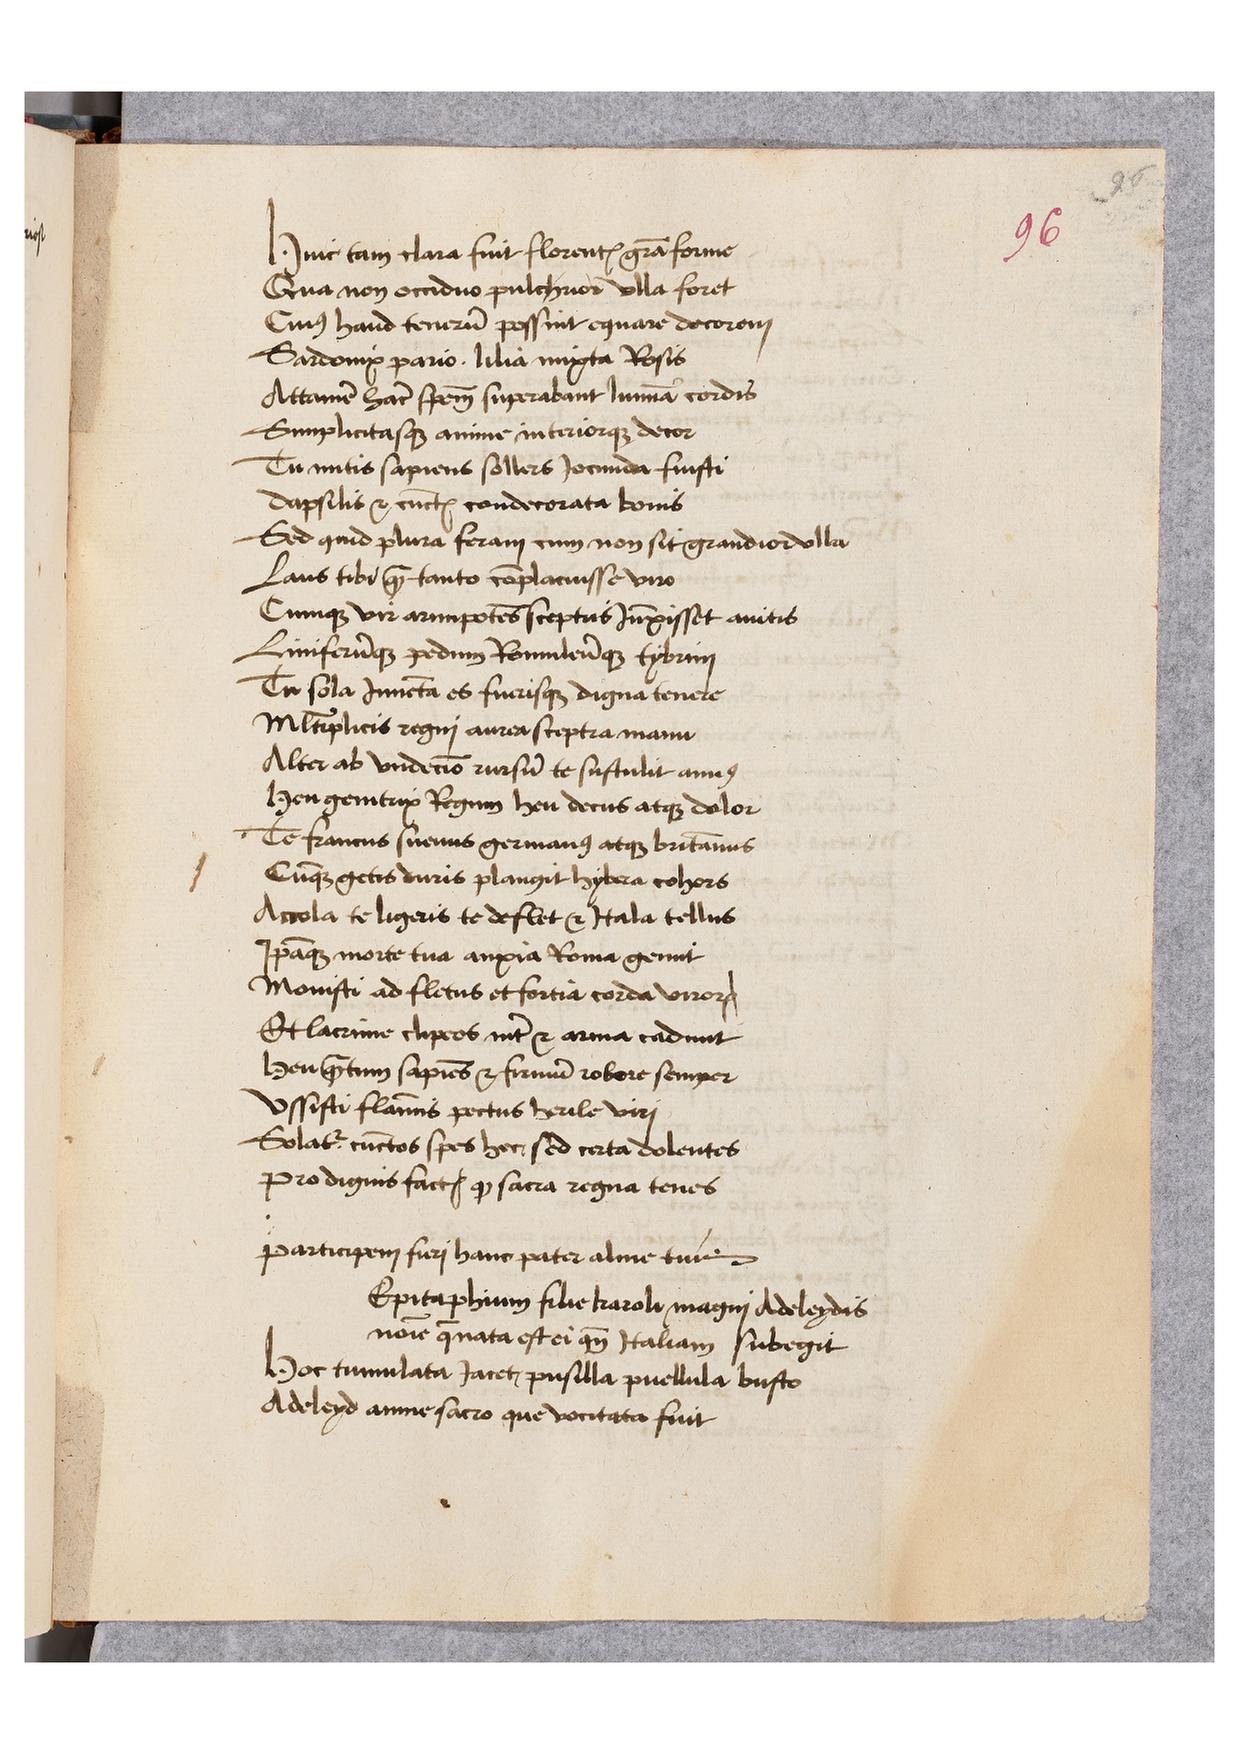 96
96
riost
Huic tam clara fuit florentꝭ grā forme
Qua non occiduo pulchrior vlla foret
Cuiꝰ haud tenerū possint equare decorem
Sardonix pario. lilia mixta Rosis
Attamē hāc spēm superabant luminā cordis
Simplicitasqꝫ anime interiorqꝫ decor
Tu mitis sapiens sollers Jocunda fuisti
Dapsilis ⁊ cūctꝭ condecorata bonis
Sed quid plura feram cum non sit grandior vlla
Laus tibi qꝫ tanto cōplacuisse viro
Cumqꝫ vir armipotēs sceptris Jūxisset auitis
Liniferūqꝫ pedum Romuleūqꝫ tybrim
Tu sola Inuēta es fuerisqꝫ digna tenere
Mltiplicis regni aurea sceptra manu
Alter ab vndecīo rursū te sustulit annꝰ
Heu genitrix Regum heu decus atqꝫ dolor
Te francus sueuus germanꝰ atqꝫ britānus
Cūqꝫ getis duris plangit hybera cohors
Accola te ligeris te deflet ⁊ Itala tellus
Ipāqꝫ morte tua anxia Roma gemit
Mouisti ad fletus et fortia corda virorꝝ
Et lacrime clipeos int̄ ⁊ arma cadunt
Heu qꝫtum sapiēs ⁊ firmū robore semper
Vssisti flāmis pectus herile viri
Solat᷑ cūctos spes hec sed certa dolentes
Pro dignis factꝭ ꝙ sacra regna tenes
Participem fieri hanc pater alme tuis
Epitaphium filie karoli magni Adeleydis
noīe q̄ nata est ei qn̄ Italiam subegit
Hoc tumulata Jacet pusilla puellula busto
Adeleyd amne sacro que vocitata fuit